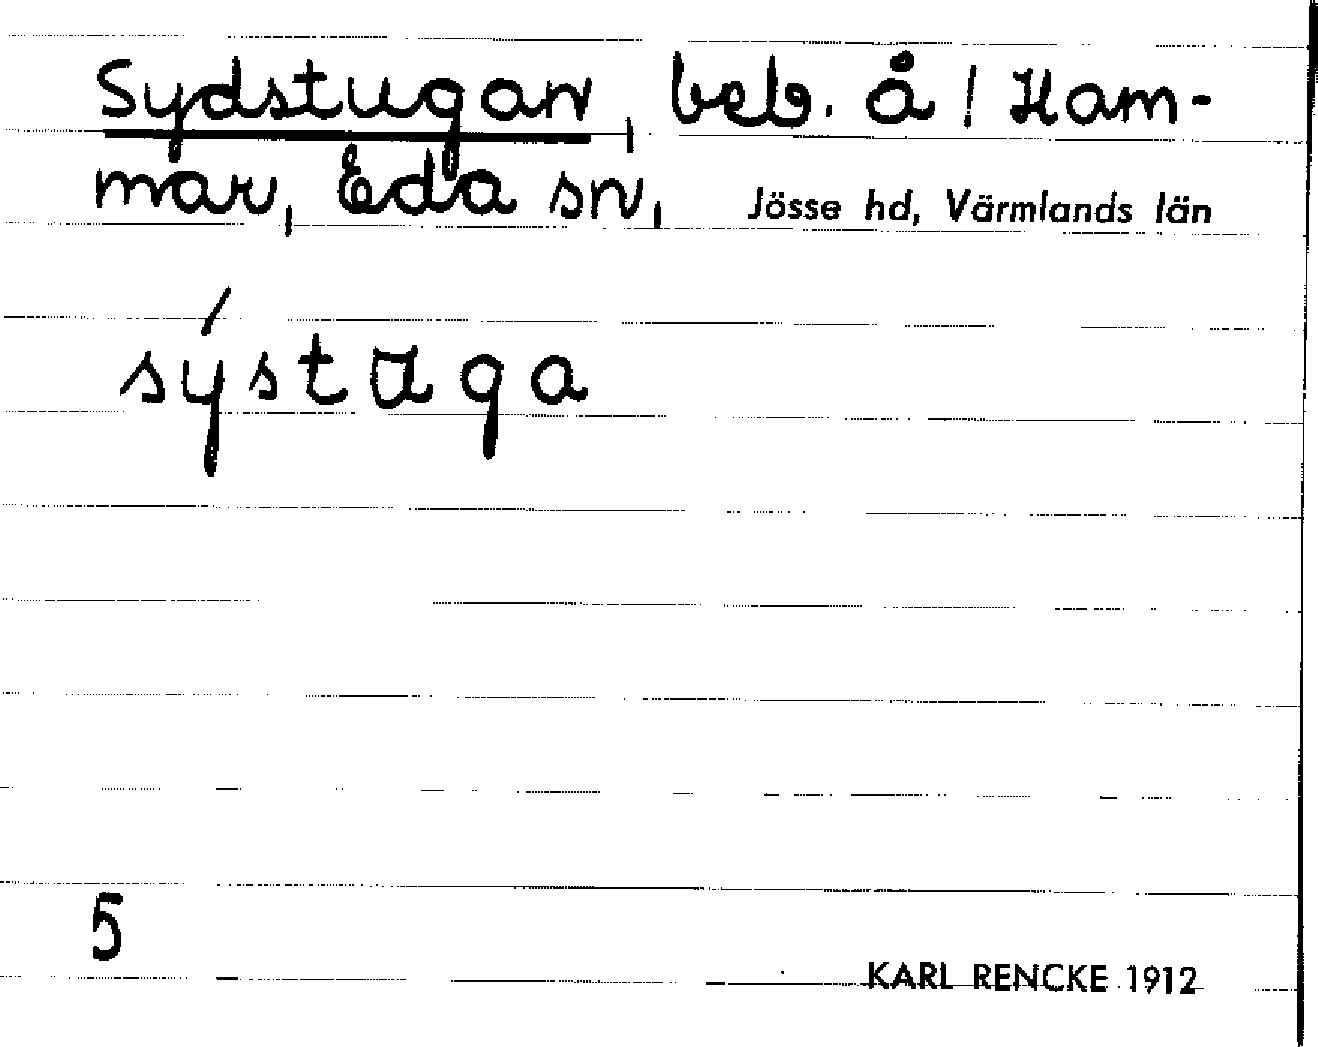 Sydstugan, beb. å / Ham-
mar, Eda sn, Jösse hd, Värmlands län
sýstuga
5
KARL RENCKE 1912